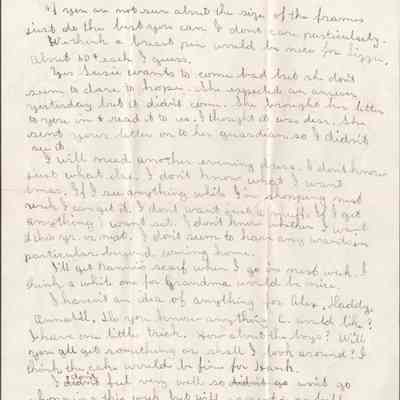 If you are not sure about the size of the frames
just do the best you can I don't care particularly.
We think a breast pin would be nice for Lizzie.
About 50¢ each I guess.
Yes Susie wants to come bad but she don't
seem to dare to hope. She expected an answer
yesterday but it didn't come. She brought her letter
to you in & read it to us. I thought it was dear. She
sent your letter on to her guardian so I didn't
see it.
I will need another evening dress. I don't know
just what else. I don't know what I want
Xmas. If I see anything while I'm shopping next
week I can get it. I don't want just a muff. If I get
anything I want set. I don't know whether I want
this yr. or not. I don't seem to have any wants in
particular beyond coming home.
I'll get Nannie's scarf when I go in next week. I
think a white one for Grandma would be nice.
I haven't an idea of anything for Alex, Haddy,
Do you know anything C. would like?
I have one little trick. How about the boys? Will
you all get something or shall I look around? I
think the would be fine for Hank.
I didn't feel very well so didn't go won't go
shopping this week but will